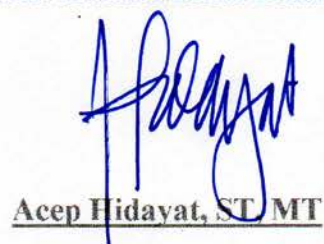 Acep Hidayat, ST, MT